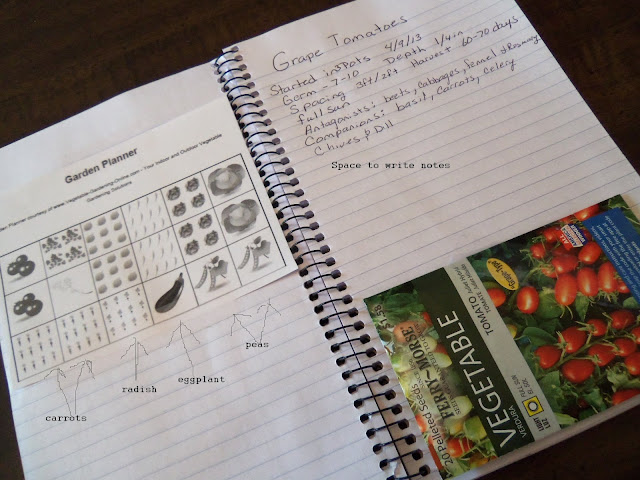 Grape Tomatoes
Started in 3 Pots 4/9/13
Germ - 7-10 Depth 1/4 in
Spacing 3ft/2ft Harvest 60-70 days
full sun
Antagonists: beets, cabbages, fennel & Rosemary
Companions: basil, carrots, celery
Chives, & Dill
Space to write notes
Garden Planner
Planner courtesy of www.Vegetable-Gardening-Online.com - Your Indoor and Outdoor Vegetable
Gardening Solutions
carrots
radish
eggplant
peas
20 Pelleted Seeds
FERRY-MORSE
VEGETABLE
VERDURA
TOMATO
TOMATE
"Grape-Type"
FULL SUN